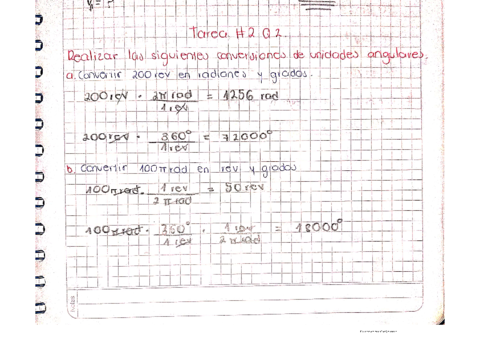 Tarea #2 G2.
Realizar las siguientes conversiones de unidades angulares.
a. Convertir 200 rev en radianes y grados.
200 rev · 2π rad / 1 rev = 1256 rad
200 rev · 360° / 1 rev = 72000°
b. Convertir 100π rad en rev y grados
100π rad · 1 rev / 2π rad = 50 rev
100π rad · 360° / 1 rev · 1 rev / 2π rad = 18000°